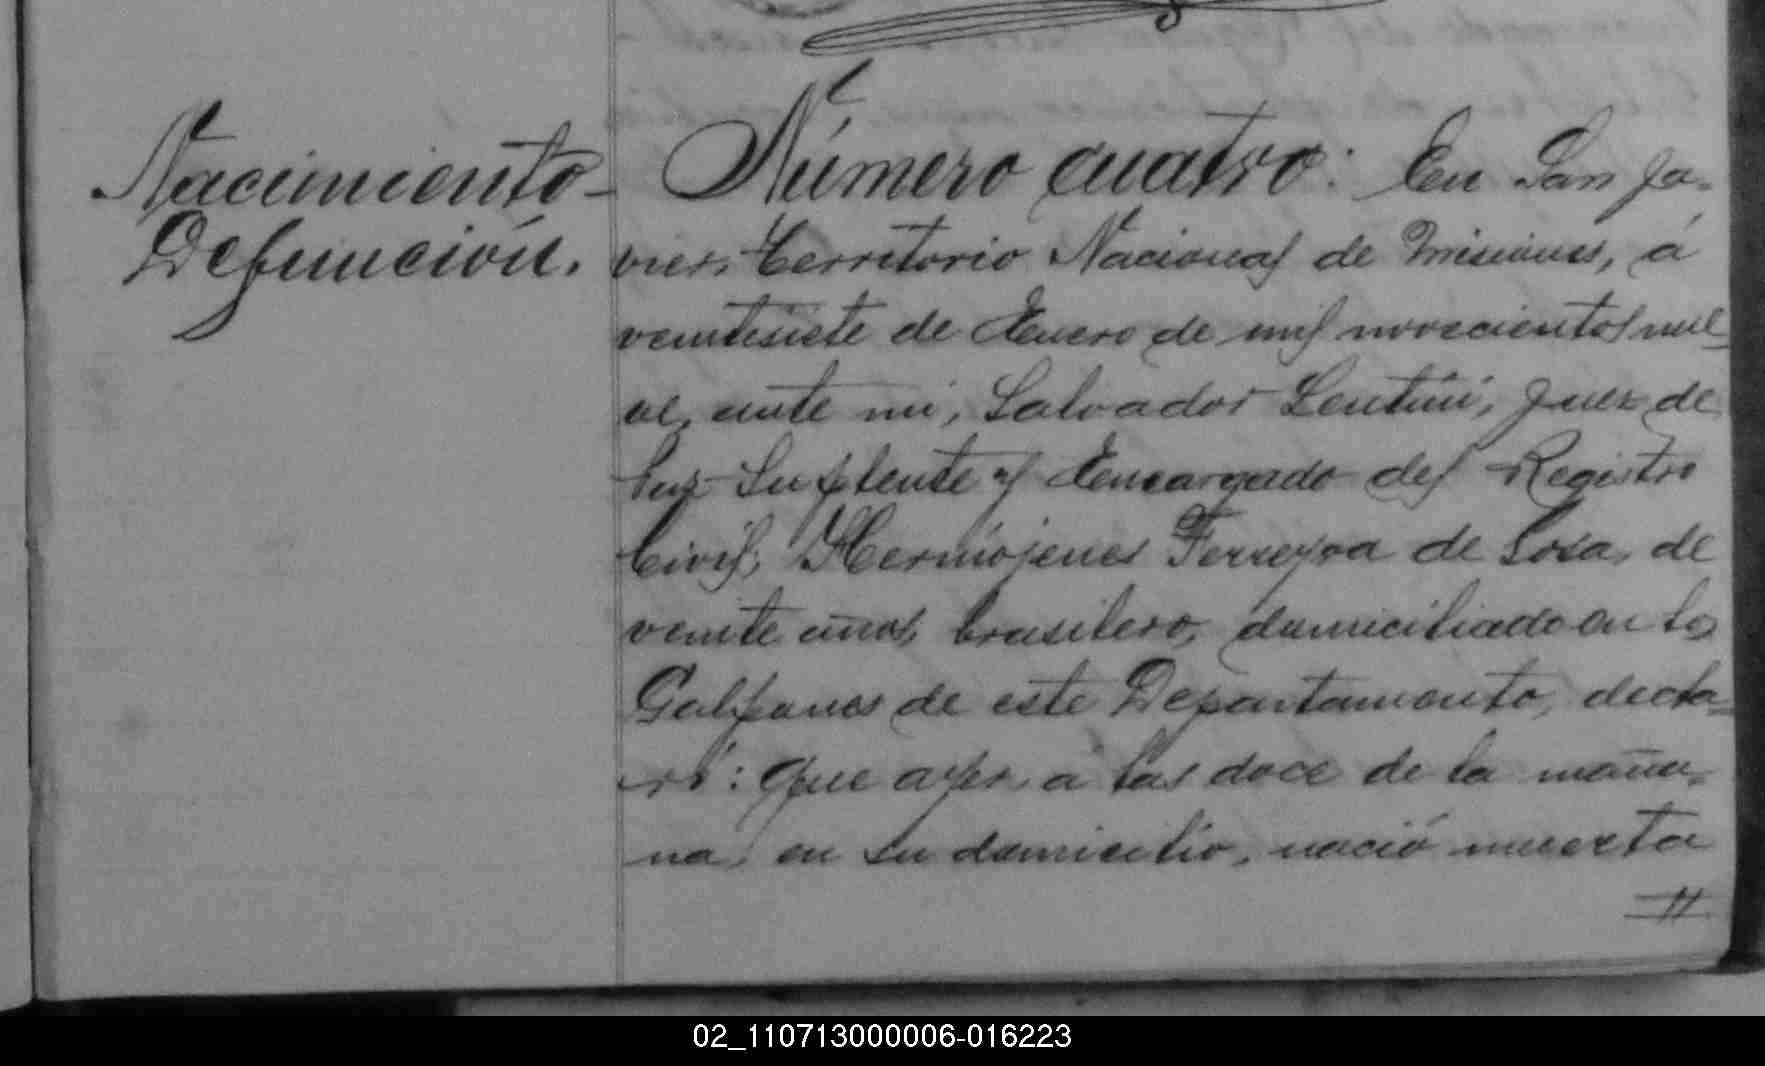 Nacimiento-
Defunción.
Número cuatro: En San Ja-
vier, Territorio Nacional de Misiones, á
veintisiete de Enero de mil novecientos nue-
ve, ante mi, Salvador Lentini, Juez de
Paz Suplente y Encargado del Registro
Civil, Hermójenes Ferreyra de Sosa, de
veinte años, brasilero, domiciliado en los
Galpones de este Departamento, decla-
ró: Que ayer, á las doce de la maña-
na, en su domicilio, nació muerta
02_110713000006-016223